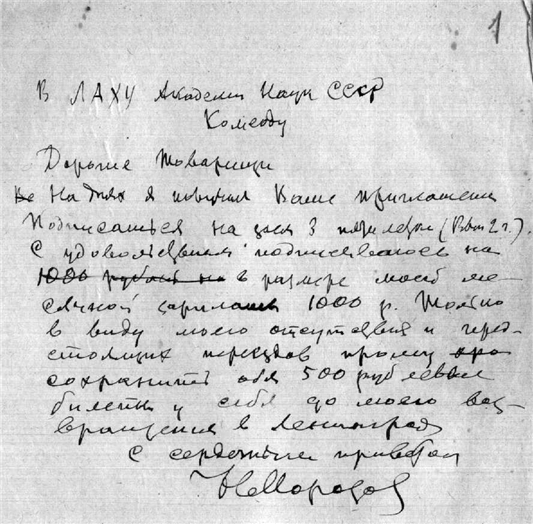 1
В ЛАХУ Академии Наук СССР
Комсоду
Дорогие Товарищи
На днях я получил Ваше приглашение
Подписаться на заем 3 пятилетки (Вып 2 г.).
С удовольствием подписываюсь на
1000 рублей на в размере моей ме-
сячной зарплаты 1000 р. Только
в виду моего отсутствия и пред-
стоящих переездов прошу
сохранить оба 500 рублевые
билеты у себя до моего воз-
вращения в Ленинград
С сердечным приветом
Н Морозов